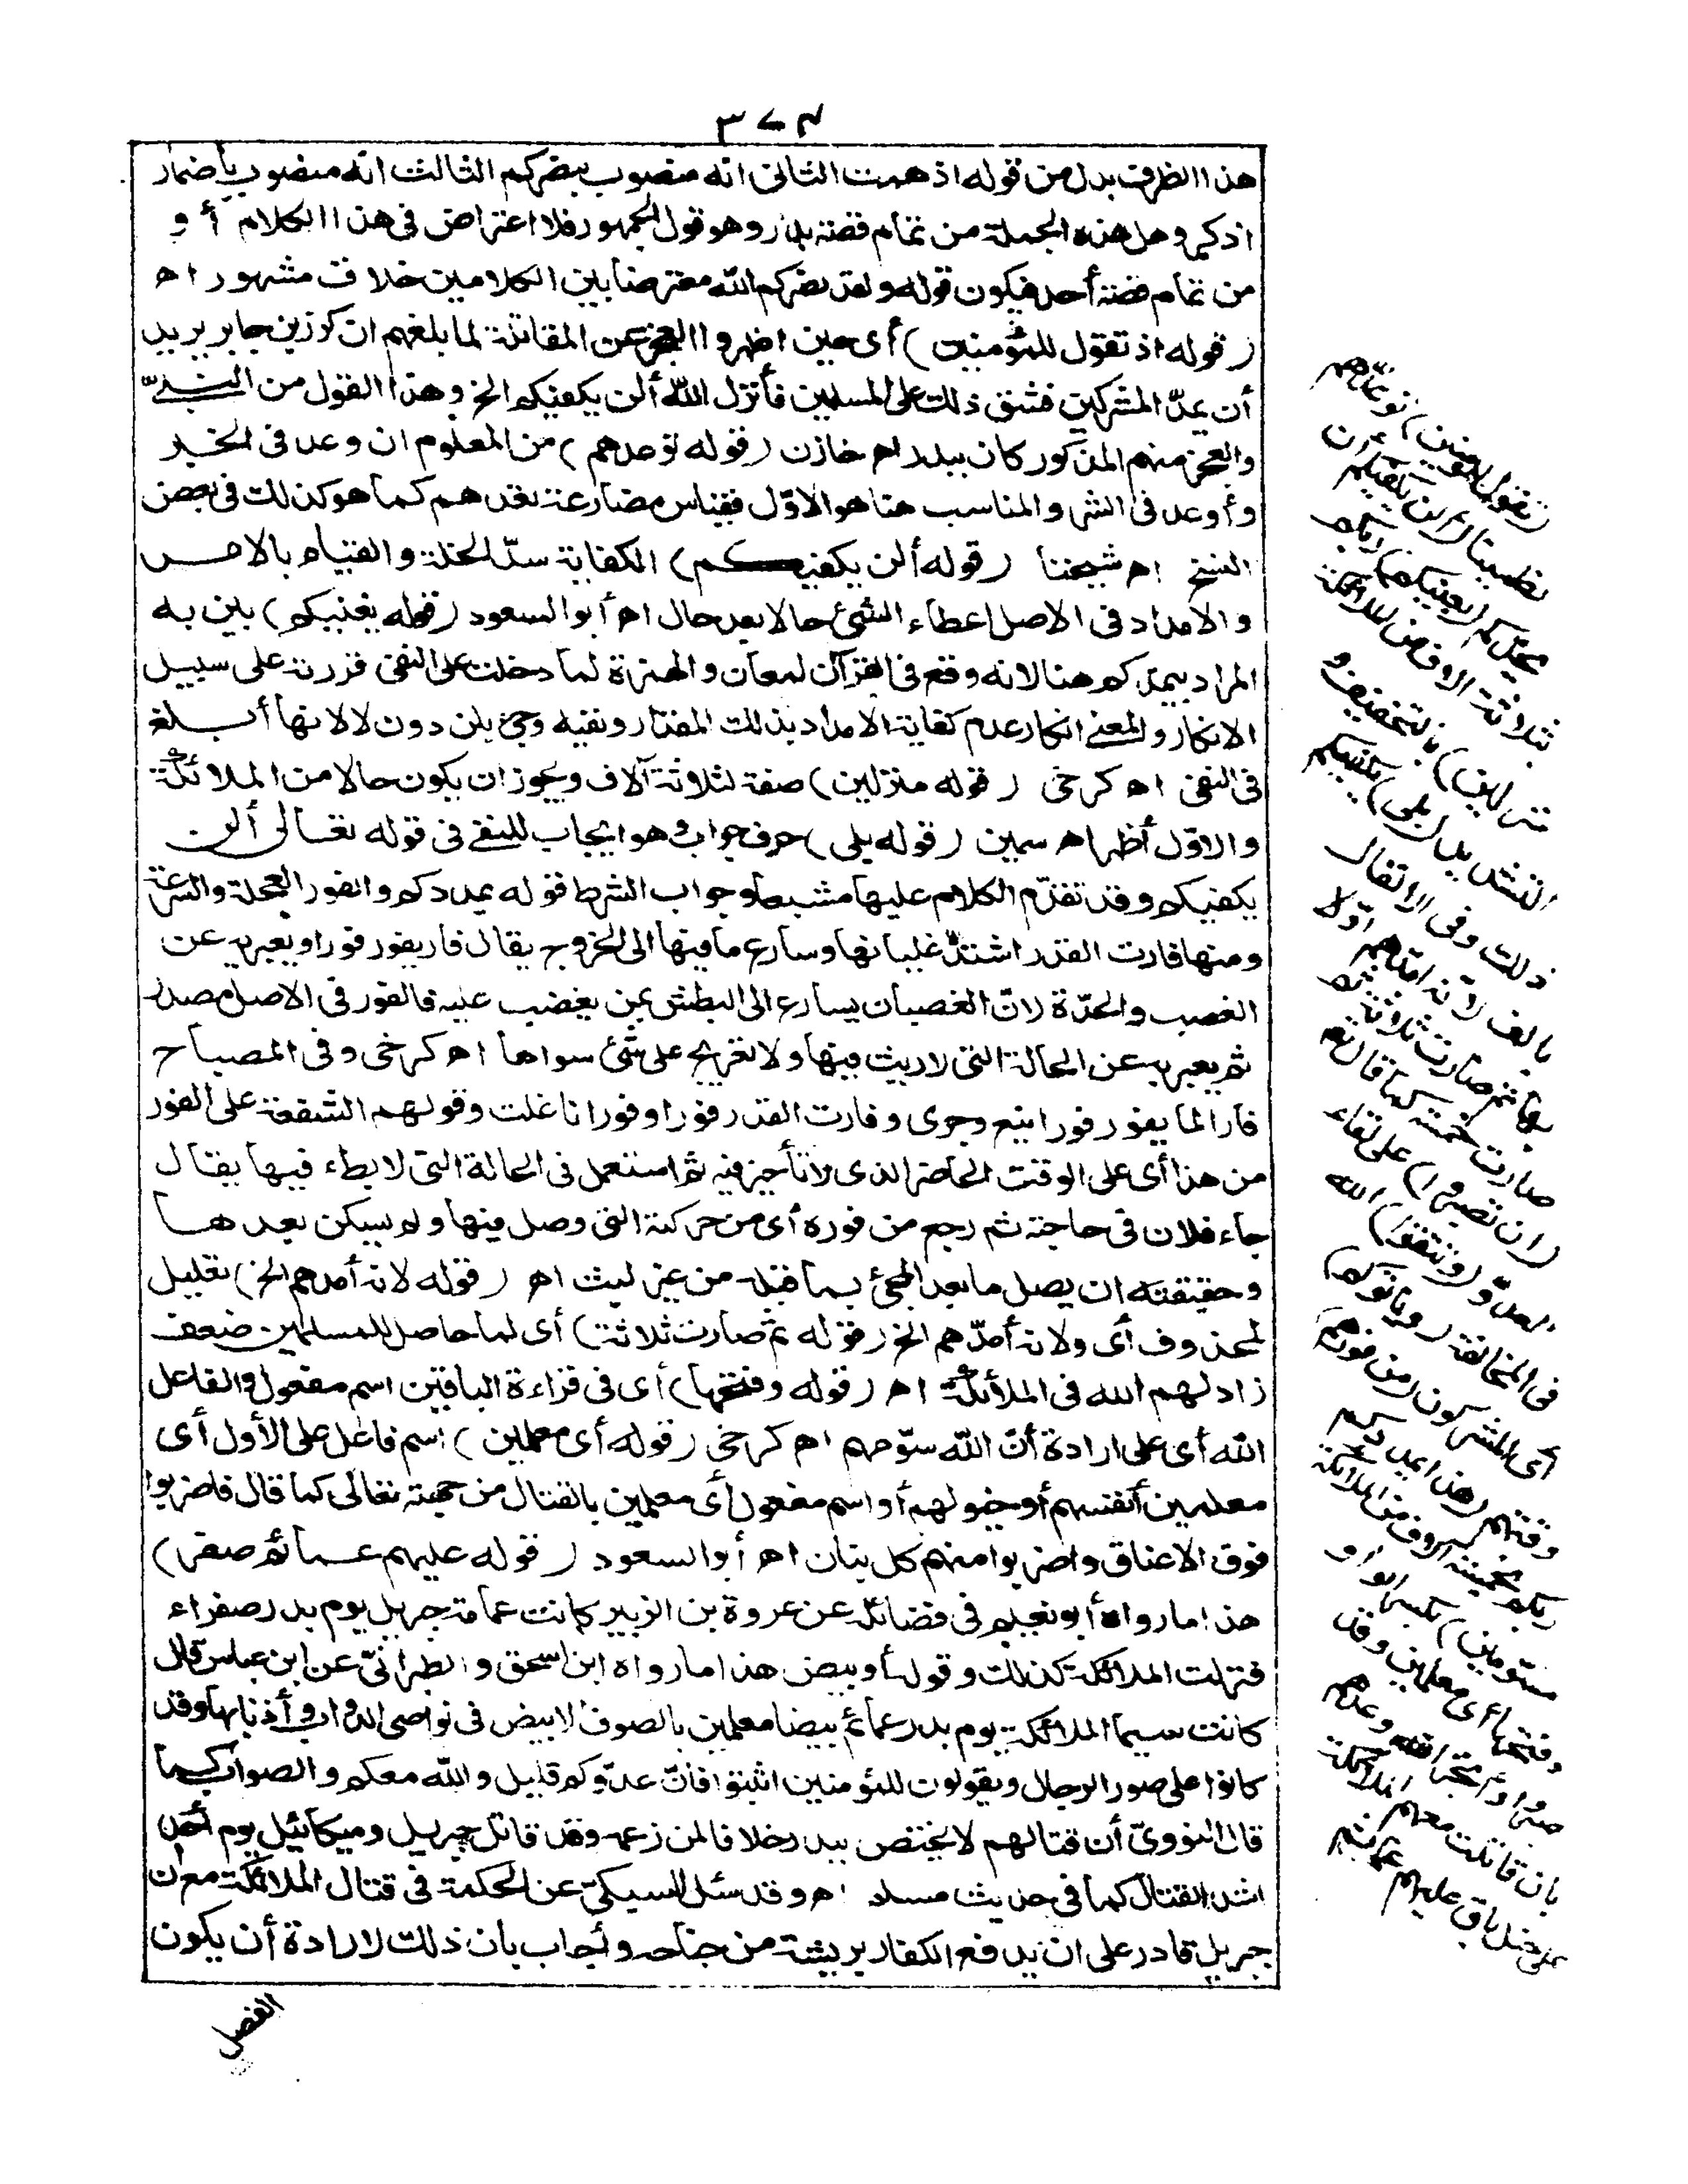 ٣٧٤
هذا الظرف بدل من قوله اذ همت الثانى انه منصوب بنصركم الثالث انه منصوب باضمار
اذكر وهل هذه الجملة من تمام قصة بدر وهو قول الجمهور فلا اعتراض فى هذا الكلام أو
من تمام قصة أحد فيكون قوله ولقد نصركم الله معترضا بين الكلامين خلاف مشهور اه
(قوله اذ تقول للمؤمنين) أى حين اظهروا العجز عن المقاتلة لما بلغهم ان كرز بن جابر يريد
أن يمدّ المشركين فشق ذلك على المسلمين فأنزل الله ألن يكفيكم الخ وهذا القول من النبىّ
والعجز منهم المذكور كان ببدر اه خازن (قوله توعدهم) من المعلوم ان وعد فى الخير
وأوعد فى الشر والمناسب هنا هو الاوّل فقياس مضارعة تعدهم كما هو كذلك فى بعض
النسخ اه شيخنا (قوله ألن يكفيكم) الكفاية سدّ الخلة والقيام بالامر
والامداد فى الاصل اعطاء الشئ حالا بعد حال اه أبو السعود (قوله يغنيكم) بين به
المراد بيمدكم هنا لانه وقع فى القرآن لمعان والهمزة لما دخلت على النفى قررته على سبيل
الانكار والمعنى انكار عدم كفاية الامداد بذلك المقدار ونفيه وجئ بلن دون لا لانها أبلغ
فى النفى اه كرخى (قوله منزلين) صفة لثلاثة آلاف ويجوز ان يكون حالا من الملائكة
والاوّل أظهر اه سمين (قوله بلى) حرف جواب وهو ايجاب للنفى فى قوله تعالى ألن
يكفيكم وقد تقدّم الكلام عليها مشبعا وجواب الشرط قوله يمددكم والفور العجلة والسرعة
ومنها فارت القدر اشتدّ غليانها وسارع ما فيها الى الخروج يقال فار يفور فورا ويعبر به عن
الغضب والحدّة لانّ الغضبان يسارع الى البطش بمن يغضب عليه فالفور فى الاصل مصدر
ثم يعبر به عن الحالة التى لا ريث فيها ولا تعريج على شئ سواها اه كرخى وفى المصباح
فار الما يفور فورا نبع وجرى وفارت القدر فورا وفورانا غلت وقولهم الشفعة على الفور
من هذا أى على الوقت الحاضر الذى لا تأخير فيه ثم استعمل فى الحالة التى لا بطء فيها يقال
جاء فلان فى حاجته ثم رجع من فوره أى من حركته التى وصل فيها ولم يسكن بعدها
وحقيقته ان يصل ما بعد المجئ بما قبله من غير لبث اه (قوله لانه أمدهم الخ) تعليل
لمحذوف أى ولانه أمدّهم الخ (قوله ثم صارت ثلاثة) أى لما حاصل للمسلمين ضعف
زاد لهم الله فى الملائكة اه (قوله وفتحها) أى فى قراءة الباقين اسم مفعول والفاعل
الله أى على ارادة أنّ الله سوّمهم اه كرخى (قوله أى معلمين) اسم فاعل على الأول أى
معلمين أنفسهم أو خيولهم أو اسم مفعول أى معلمين بالقتال من جهته تعالى كما قال فاضربوا
فوق الاعناق واضربوا منهم كل بنان اه أبو السعود (قوله عليهم عمائم صفر)
هذا ما رواه أبو نعيم فى فضائله عن عروة بن الزبير كانت عمامة جبريل يوم بدر صفراء
فنزلت الملائكة كذلك وقوله أو بيض هذا ما رواه ابن اسحق والطبرانىّ عن ابن عباس قال
كانت سيما الملائكة يوم بدر عمائم بيضا معلمين بالصوف الابيض فى نواصى الدواب وأذنابها وقد
كانوا على صور الرجال ويقولون للمؤمنين اثبتوا فانّ عدّوكم قليل والله معكم والصواب كما
قال النووىّ أن قتالهم لا يختص ببدر خلافا لمن زعمه وقد قاتل جبريل وميكائيل يوم أحد
اشد القتال كما فى حديث مسلم اه وقد سئل السبكىّ عن الحكمة فى قتال الملائكة مع ان
جبريل قادر على ان يدفع الكفار بريشة من جناحه وأجاب بان ذلك لارادة أن يكون
الفضل
(تقول للمؤمنين) توعدهم
تطمينا (ألن يكفيكم أن
يمدّكم) يعينكم (ربكم
بثلاثة آلاف من الملائكة
منزلين) بالتخفيف و
التشديد (بلى) يكفيكم
ذلك وفى الانفال
بالف لانه امدهم اولا
بها ثم صارت ثلاثة ثم
صارت خمسة كما قال تعالى
(ان تصبروا) على لقاء
العدوّ (وتتقوا) الله
فى المخالفة (ويأتوكم)
أى المشركون (من فورهم
وقتهم (هذا يمددكم
ربكم بخمسة آلاف من الملائكة
مسوّمين) بكسر الواو
وفتحها أى معلمين وقد
صبروا وأنجز الله وعدهم
بان قاتلت معهم الملائكة
على خيل بلق عليهم عمائم